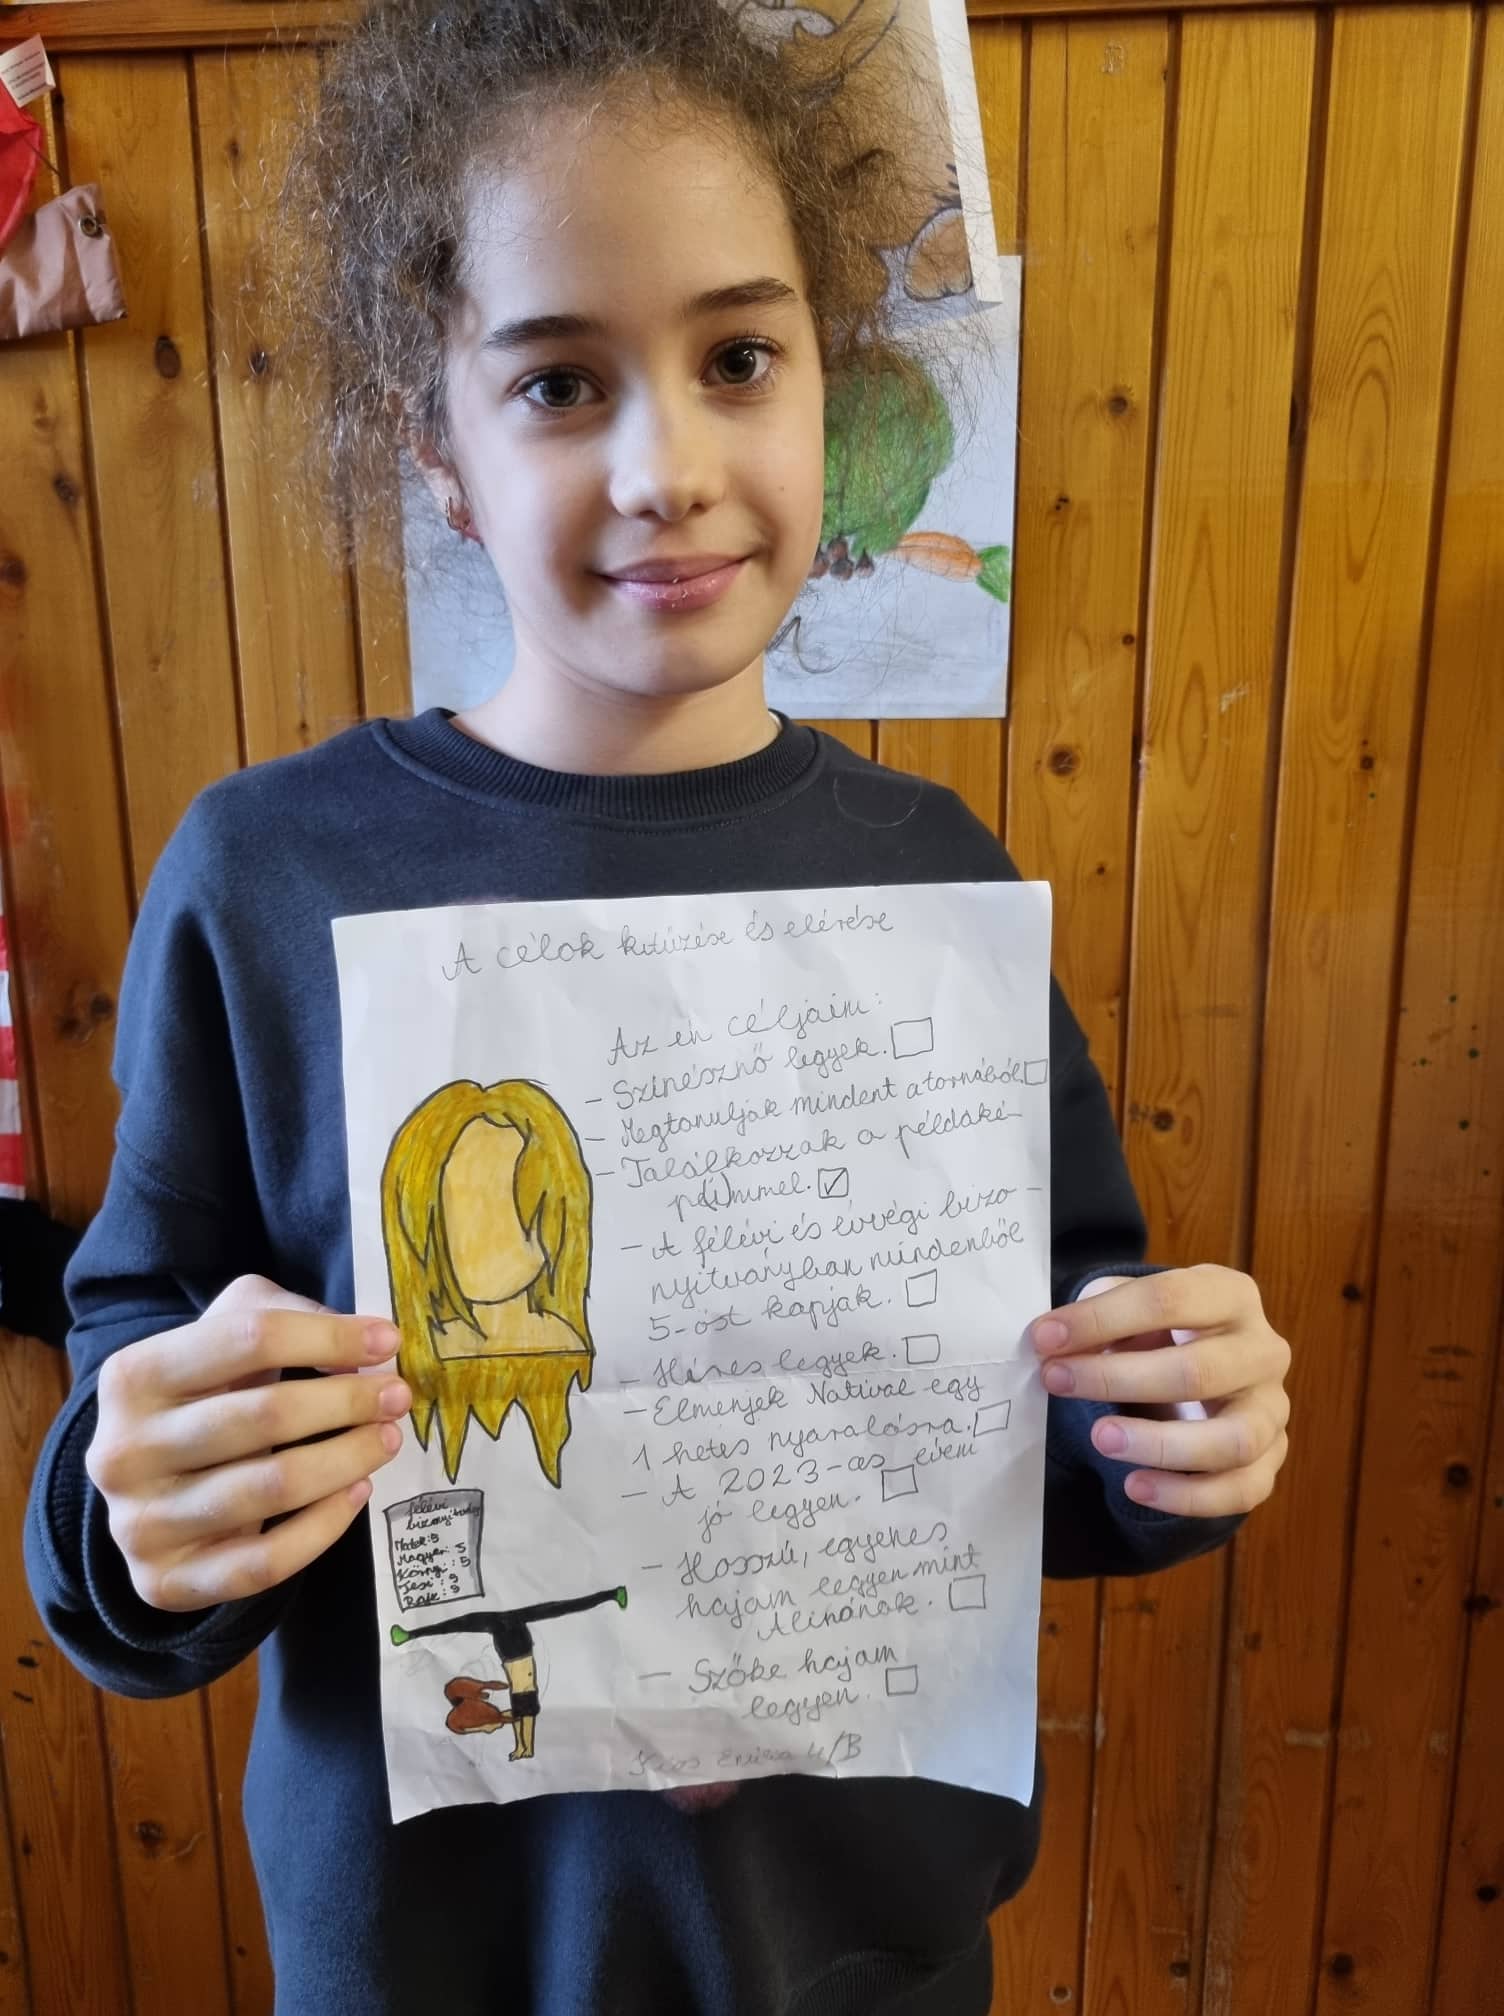 A célok kitűzése és elérése
Az én céljaim:
- Színésznő legyek.
- Megtanuljak mindent a tornából.
- Találkozzak a példaké-
p(i)mmel.
- A félévi és évvégi bizo-
nyitványban mindenből
5-öst kapjak.
- Híres legyek.
- Elmenjek Natival egy
1 hetes nyaralásra.
- A 2023-as évem
jó legyen.
- Hosszú, egyenes
hajam legyen mint
Alinának.
- Szőke hajam
legyen.
4/B
félévi
bizonyítvány
Matek: 5
Magyar: 5
Körny.: 5
Tesi: 5
Rajz: 5